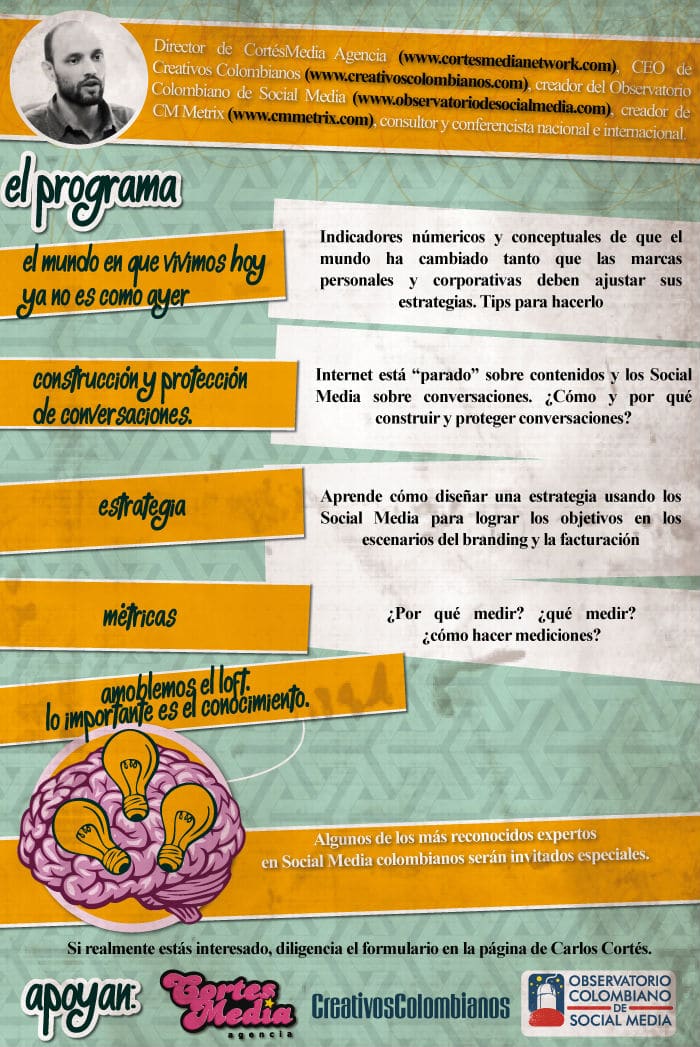 Director de CortésMedia Agency (www.cortesmedianetwork.com), CEO de
Creativos Colombianos (www.creativoscolombianos.com), creador del Observatorio
Colombiano de Social Media (www.observatoriodesocialmedia.com), creador de
CM Metrix (www.cmmetrix.com), consultor y conferencista nacional e internacional.
el programa
el mundo en que vivimos hoy
ya no es como ayer
Indicadores númericos y conceptuales de que el
mundo ha cambiado tanto que las marcas
personales y corporativas deben ajustar sus
estrategias. Tips para hacerlo
construcción y protección
de conversaciones.
Internet está “parado” sobre contenidos y los Social
Media sobre conversaciones. ¿Cómo y por qué
construir y proteger conversaciones?
estrategia
Aprende cómo diseñar una estrategia usando los
Social Media para lograr los objetivos en los
escenarios del branding y la facturación
métricas
¿Por qué medir? ¿qué medir?
¿cómo hacer mediciones?
amoblemos el loft.
lo importante es el conocimiento.
Algunos de los más reconocidos expertos
en Social Media colombianos serán invitados especiales.
Si realmente estás interesado, diligencia el formulario en la página de Carlos Cortés.
apoyan:
Cortes
Media
agencia
CreativosColombianos
OBSERVATORIO
COLOMBIANO
DE
SOCIAL MEDIA